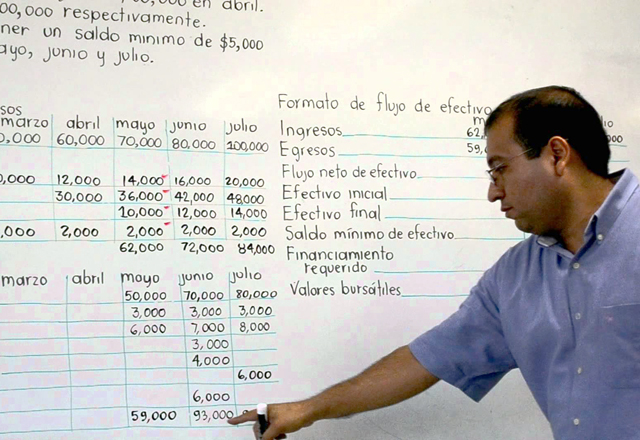 en abril.
00,000 respectivamente.
ner un saldo minimo de $5,000
ayo, junio y julio.
sos
marzo abril mayo junio julio
0,000 60,000 70,000 80,000 100,000
0,000 12,000 14,000 16,000 20,000
30,000 36,000 42,000 48,000
10,000 12,000 14,000
,000 2,000 2,000 2,000 2,000
62,000 72,000 84,000
marzo abril mayo junio julio
50,000 70,000 80,000
3,000 3,000 3,000
6,000 7,000 8,000
3,000
4,000
6,000
6,000
59,000 93,000
Formato de flujo de efectivo
m lio
Ingresos 62, 000
Egresos 59,
Flujo neto de efectivo
Efectivo inicial
Efectivo final
Saldo mínimo de efectivo
Financiamiento
requerido
Valores bursátiles